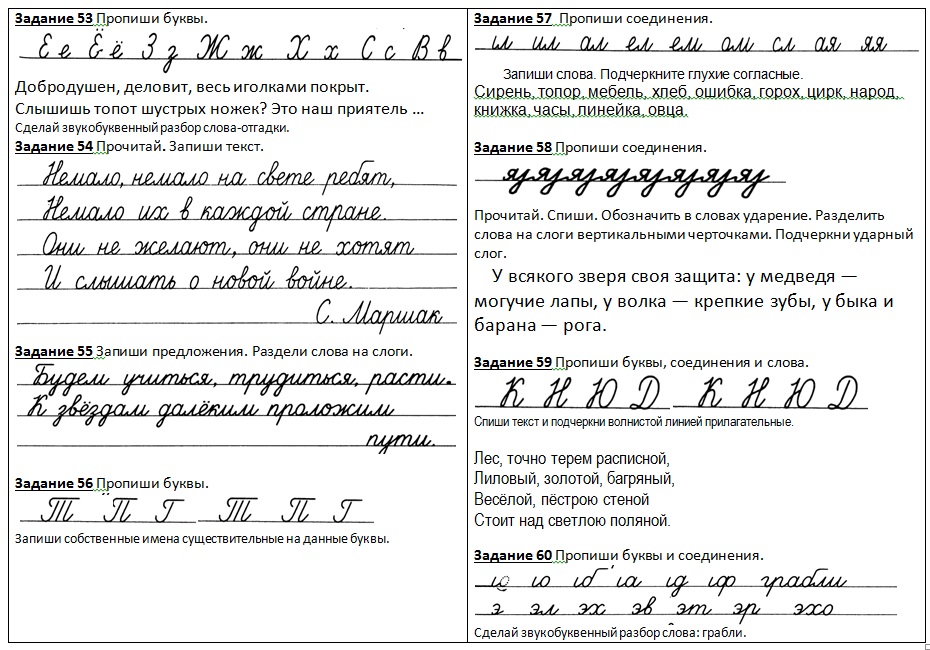 Задание 53 Пропиши буквы.
Е е Ё ё З з Ж ж Х х С с В в
Добродушен, деловит, весь иголками покрыт.
Слышишь топот шустрых ножек? Это наш приятель ...
Сделай звукобуквенный разбор слова-отгадки.
Задание 54 Прочитай. Запиши текст.
Немало, немало на свете ребят,
Немало их в каждой стране.
Они не желают, они не хотят
И слышать о новой войне.
С. Маршак
Задание 55 Запиши предложения. Раздели слова на слоги.
Будем учиться, трудиться, расти.
К звёздам далёким проложим
пути.
Задание 56 Пропиши буквы.
Т П Г Т П Г
Запиши собственные имена существительные на данные буквы.
Задание 57 Пропиши соединения.
ил ил ал ел ем ом сл ая яя
Запиши слова. Подчеркните глухие согласные.
Сирень, топор, мебель, хлеб, ошибка, горох, цирк, народ,
книжка, часы, линейка, овца.
Задание 58 Пропиши соединения.
Прочитай. Спиши. Обозначить в словах ударение. Разделить
слова на слоги вертикальными черточками. Подчеркни ударный
слог.
У всякого зверя своя защита: у медведя —
могучие лапы, у волка — крепкие зубы, у быка и
барана — рога.
Задание 59 Пропиши буквы, соединения и слова.
К Н Ю Д К Н Ю Д
Спиши текст и подчеркни волнистой линией прилагательные.
Лес, точно терем расписной,
Лиловый, золотой, багряный,
Весёлой, пёстрою стеной
Стоит над светлою поляной.
Задание 60 Пропиши буквы и соединения.
ю ю юб юа юд юф грабли
э эл эх эв эт эр эхо
Сделай звукобуквенный разбор слова: грабли.